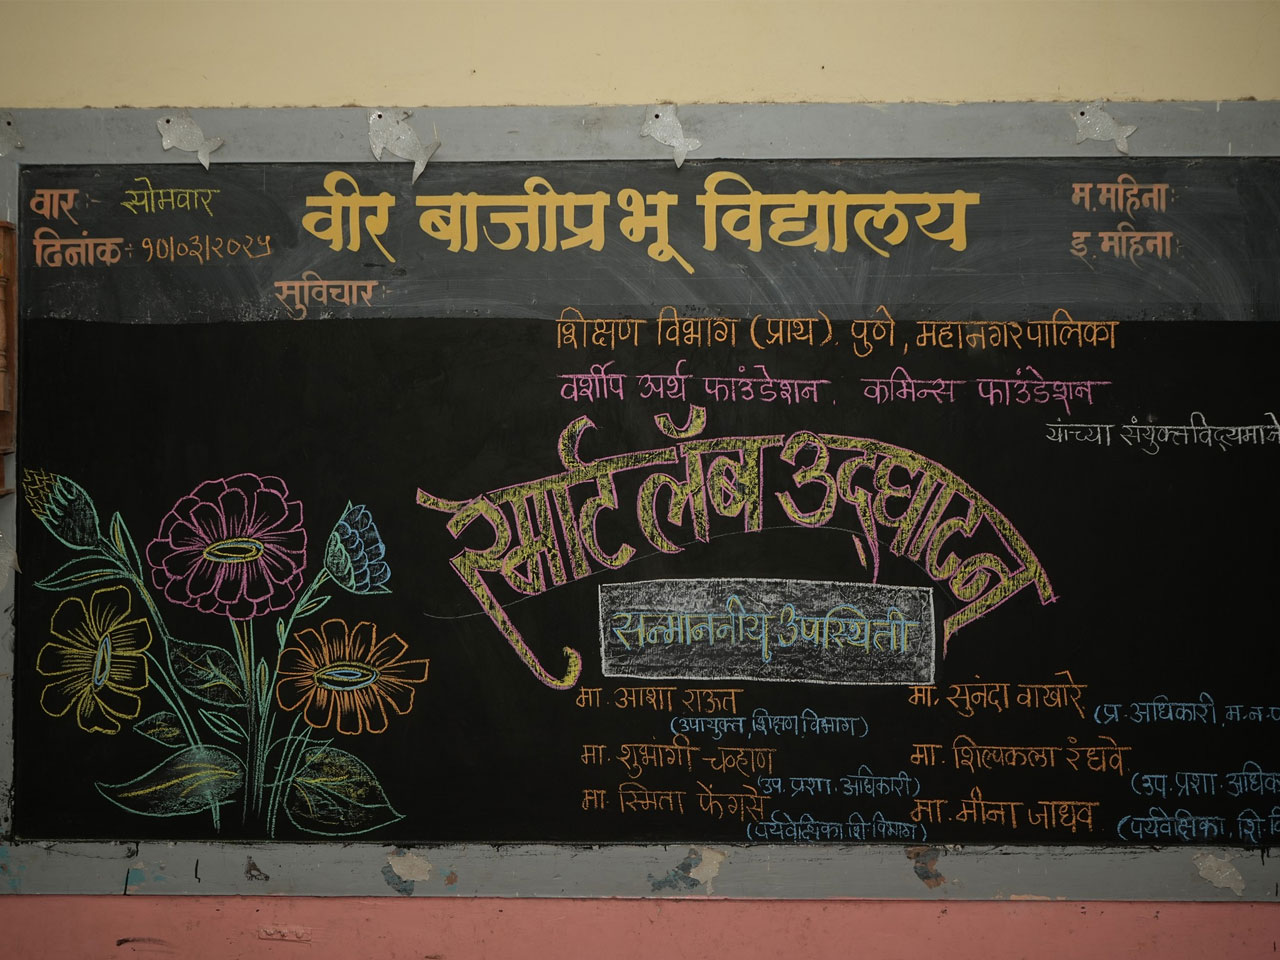 वार :- सोमवार
वीर बाजीप्रभू विद्यालय
म.महिना:
दिनांक :- १०/०३/२०२५
इ.महिना:
सुविचार :-
शिक्षण विभाग (प्राथ). पुणे, महानगरपालिका
वर्शीप अर्थ फाउंडेशन, कमिन्स फाउंडेशन
यांच्या संयुक्त विद्यमाने
स्मार्ट लॅब उद्घाटन
सन्माननीय उपस्थिती
मा. आशा राऊत
(उपायुक्त, शिक्षण विभाग)
मा. सुनंदा वाखारे
(प्र. अधिकारी, म.न.
मा. शुभांगी चव्हाण
(उप. प्रशा. अधिकारी)
मा. शिल्पकला रंधवे
(उप. प्रशा.
मा. स्मिता फेंगसे
(पर्यवेक्षिका, शि. विभाग)
मा. मीना जाधव
(पर्यवेक्षिका, शि.